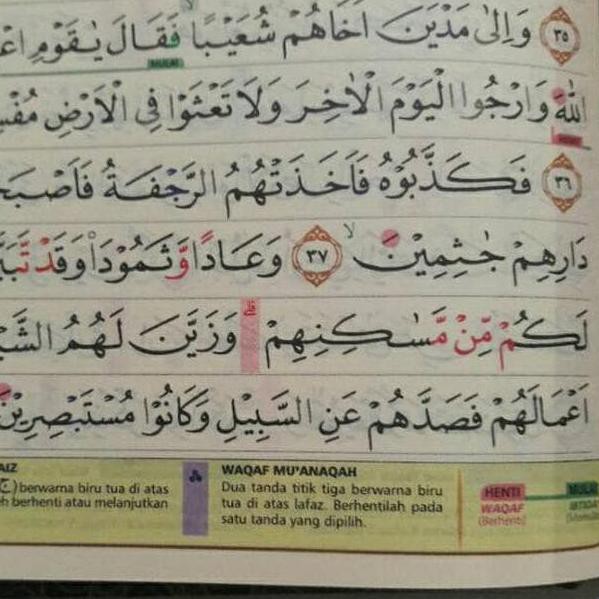 ٣٥ وَاِلٰى مَدْيَنَ اَخَاهُمْ شُعَيْبًا فَقَالَ يٰقَوْمِ
MULAI
اللّٰهَ وَارْجُوا الْيَوْمَ الْاٰخِرَ وَلَا تَعْثَوْا فِى الْاَرْضِ
٣٦ فَكَذَّبُوْهُ فَاَخَذَتْهُمُ الرَّجْفَةُ
دَارِهِمْ جٰثِمِيْنَ ۙ ٣٧ وَعَادًا وَّثَمُوْدَا۟ وَقَدْ
لَكُمْ مِّنْ مَّسٰكِنِهِمْ ۗ وَزَيَّنَ لَهُمُ
اَعْمَالَهُمْ فَصَدَّهُمْ عَنِ السَّبِيْلِ وَكَانُوْا مُسْتَبْصِرِيْنَ
AIZ
berwarna biru tua di atas
berhenti atau melanjutkan
WAQAF MU'ANAQAH
Dua tanda titik tiga berwarna biru
tua di atas lafaz. Berhentilah pada
satu tanda yang dipilih.
HENTI
WAQAF
(Berhenti)